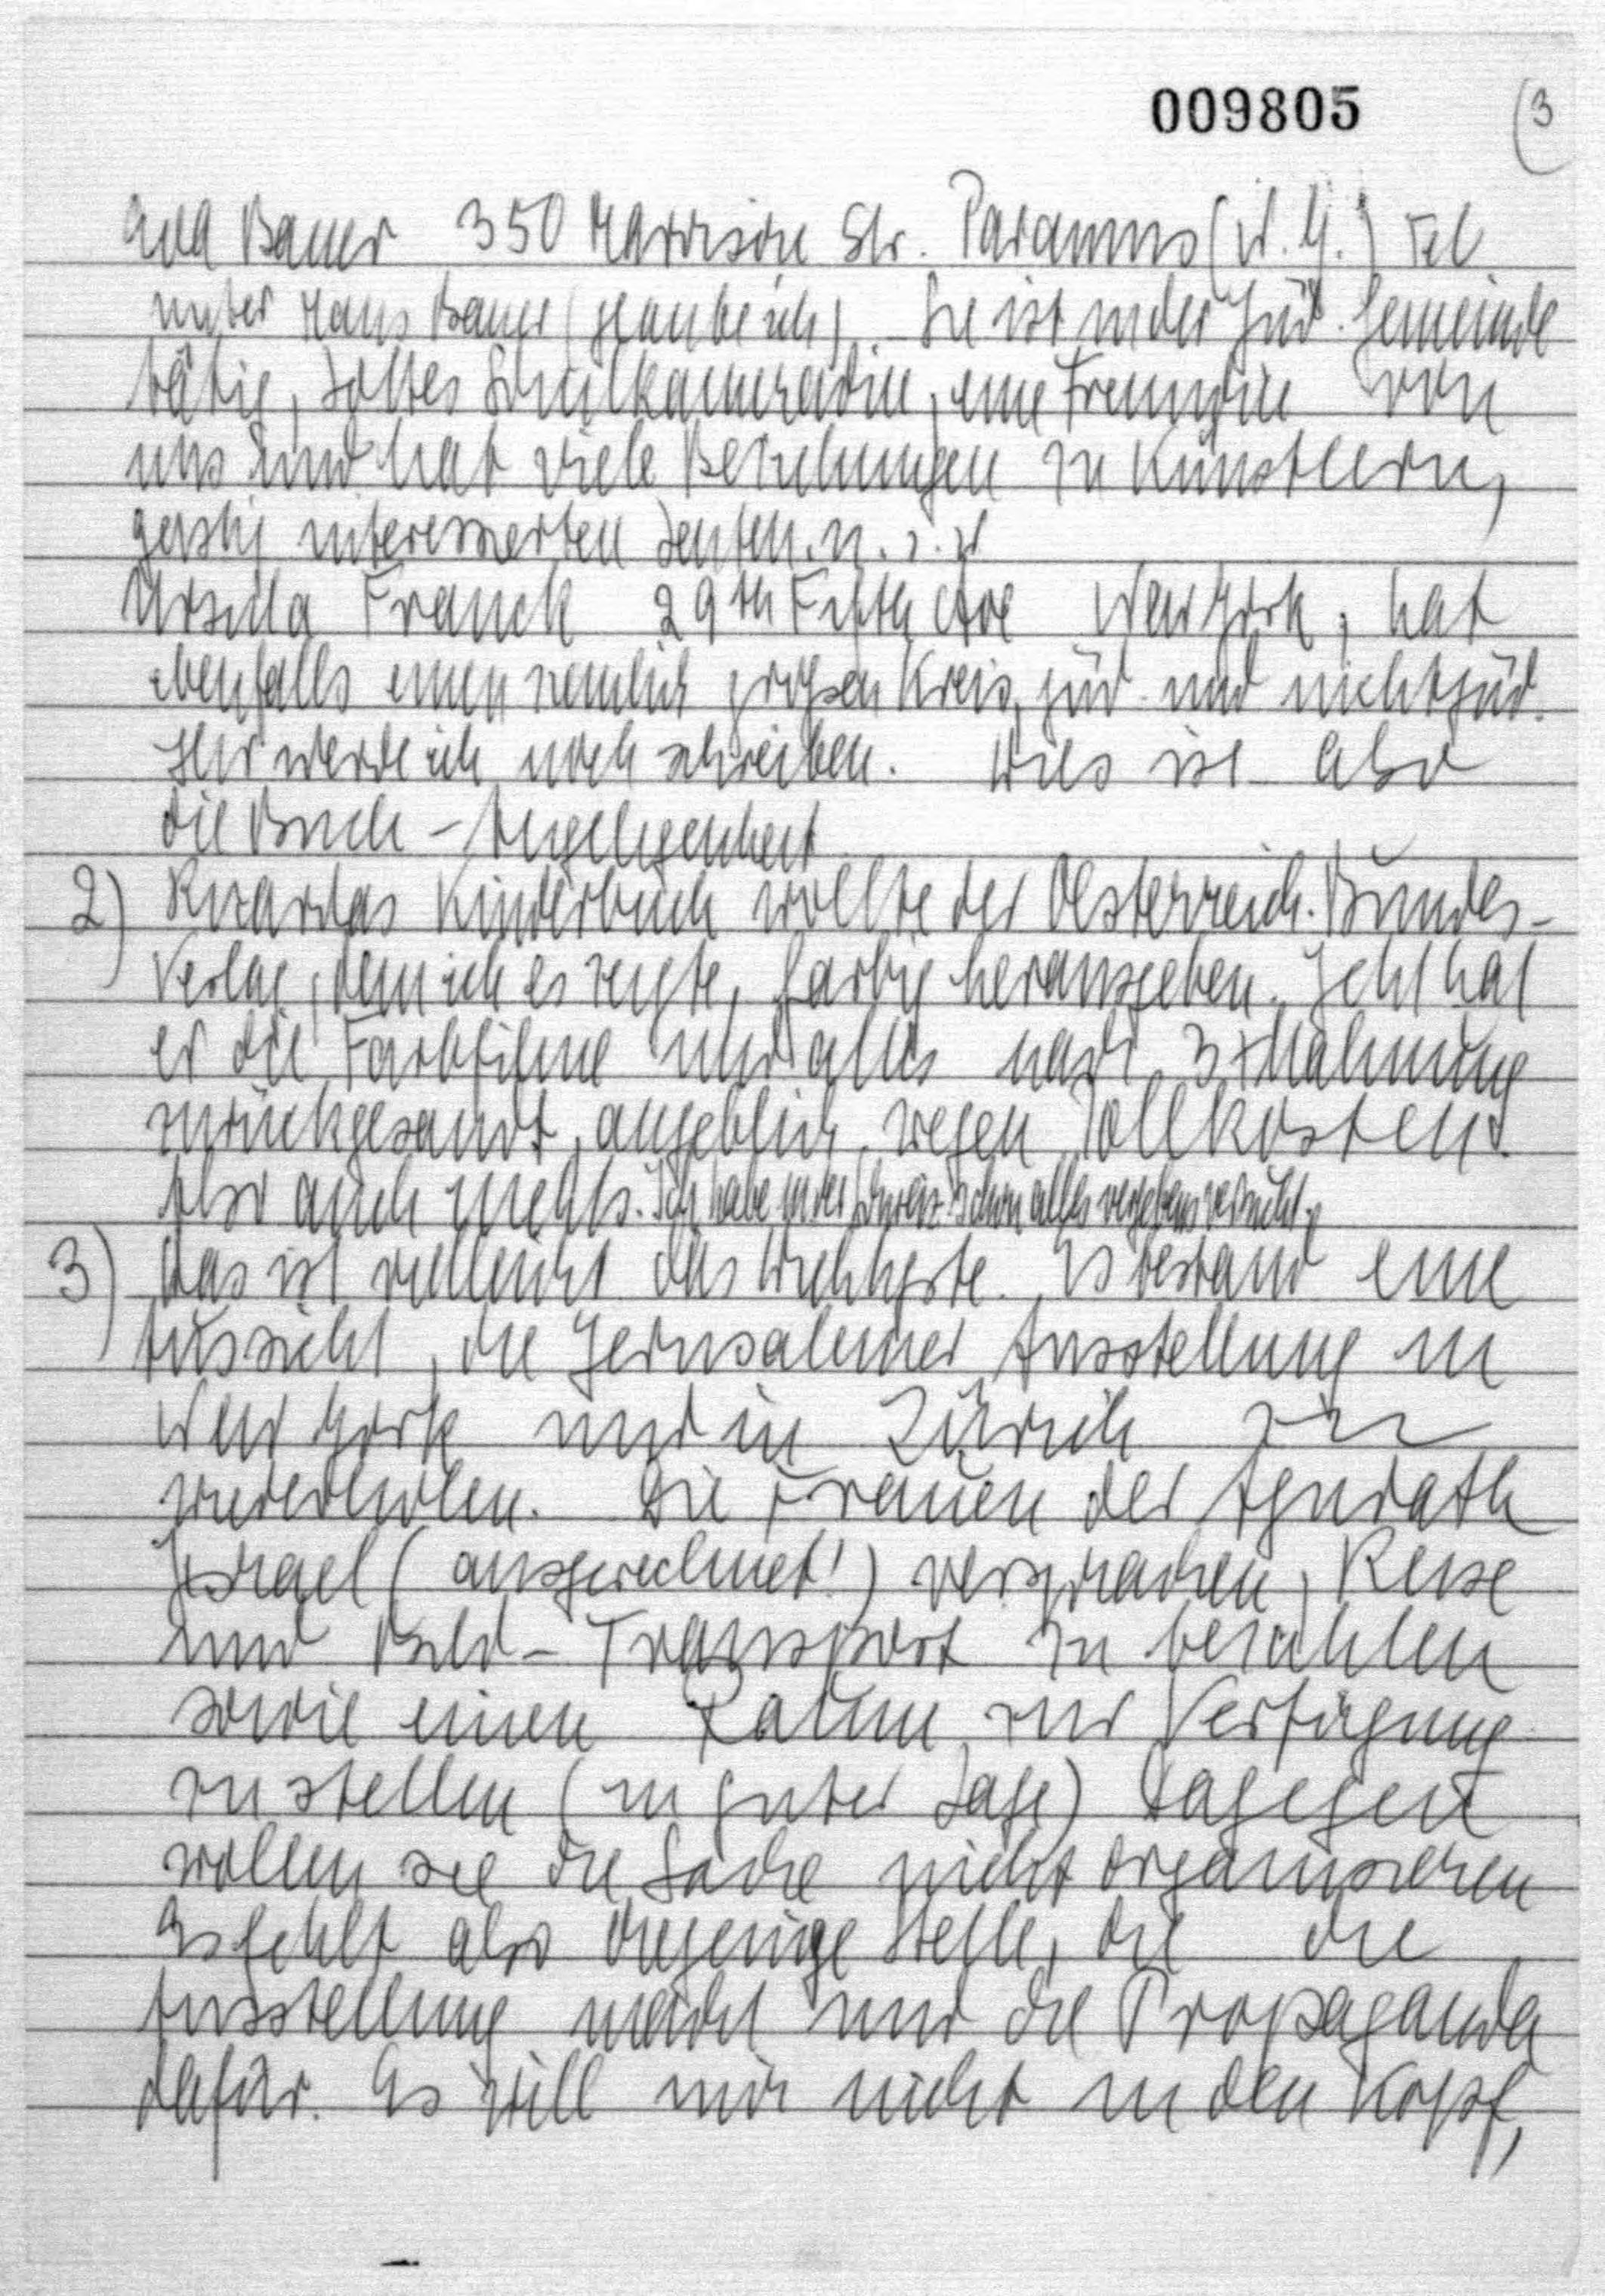 009805 (3
Bauer 350 Harrison Str. Paramus (N.Y.) Tel
unter Hans Bauer (glaube ich). Sie ist in der Jüd. Gemeinde
tätig, Schulkameradin, eine Freundin von
uns und hat viele Beziehungen zu Künstlern,
geistig interessierten Leuten u.s.w
Ursula Franck 29th Fifth Ave New York, hat
ebenfalls einen ziemlich grossen Kreis, jüd. und nichtjüd.
Ihr werde ich noch schreiben. Dies ist also
die Buch-Angelegenheit
2) Ricardas Kinderbuch wollte der Oesterreich. Bundes-
Verlag, dem ich es zeigte, farbig herausgeben. Jetzt hat
er die Farbfilme und alles nach 3x Mahnung
zurückgesandt, angeblich wegen Zollkosten.
Also auch nichts. Ich habe in der Schweiz schon alles vergebens versucht.
3) Das ist vielleicht das Wichtigste. Es bestand eine
Aussicht, die Jerusalemer Ausstellung in
New York und in Zürich zu
wiederholen. Die Frauen der Agudath
Jisrael (ausgerechnet!) versprachen, Reise
und Bild-Transport zu bezahlen
sowie einen Raum zur Verfügung
zu stellen (in guter Lage) Dagegen
wollen sie die Sache nicht organisieren
Es fehlt also diejenige Stelle, die die
Ausstellung macht und die Propaganda
dafür. Es will mir nicht in den Kopf,